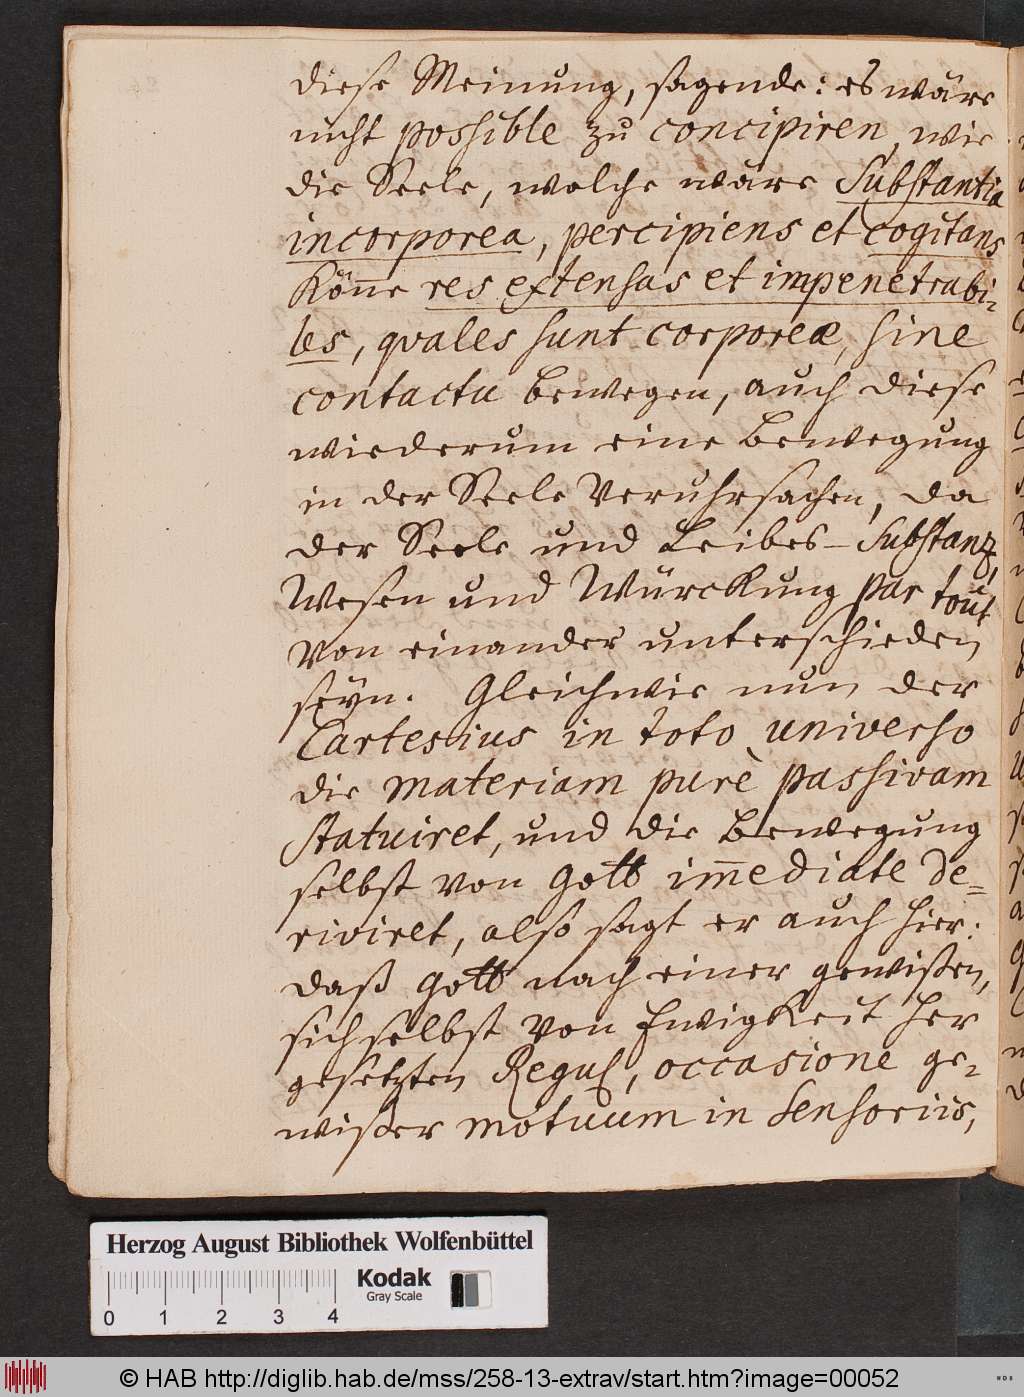 diese Meinung, sagende: es wäre
nicht possible zu concipiren, wie
die Seele, welche wäre Substantia
incorporea, percipiens et cogitans
Köñe res extensas et impenetrabi-
les, qvales sunt corporeæ, sine
contactu bewegen, auch diese
wiederum eine Bewegung
in der Seele Veruhrsachen, da
der Seele und Leibes-Substanz,
Wesen und Würckung par tout
von einander unterschieden
seÿn. Gleichwie nun der
Cartesius in toto universo
die materiam purè passivam
statuiret, und die Bewegung
selbst von Gott im̄ediate de-
riviret, also sagt er auch hier:
daß Gott nach einer gewißen,
sich selbst von Ewigkeit her
gesetzten Regul, occasione ge-
wißer motuum in Sensoriis,
Herzog August Bibliothek Wolfenbüttel
Kodak
Gray Scale
0 1 2 3 4
© HAB http://diglib.hab.de/mss/258-13-extrav/start.htm?image=00052